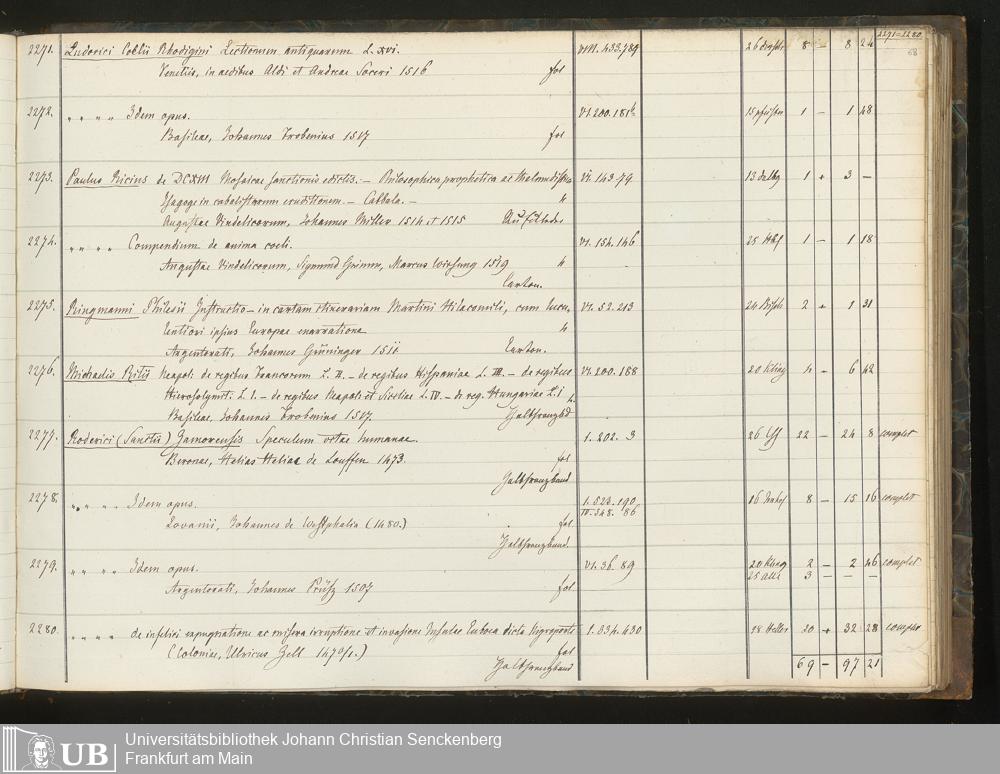 2271–2280.
68
2271. Ludovici Coelii Rhodigini Lectionum antiquarum L. XVI. VIII. 433.789 8 – 8 24
Venetiis, in aedibus Aldi et Andreae Soceri 1516 fol
2272. " " " " Idem opus. VI. 200. 181b 1 – 1 48
Basileae, Johannes Frobenius 1517 fol
2273. Paulus Ricius de DCXIII Mosaicae sanctionis edictis. – Philosophica prophetica ac Thalmudistica VI. 143.79 1 + 3 –
Isagoge in cabalistarum eruditionem. – Cabbala. – 4
Augustae Vindelicorum, Johannes Miller 1514 et 1515
2274. " " " " Compendium de anima coeli. VI. 154. 146 1 – 1 18
Augustae Vindelicorum, Sigmund Grimm, Marcus Wirsung 1519 4
Carton.
2275. Ringmanni Philesii Instructio – in cartam itinerariam Martini Hilacomili, cum lucu, VI. 52. 213 2 + 1 31
lentiori ipsius Europae enarratione 4
Argentorati, Johannes Grüninger 1511 Carton.
2276. Michaelis Ritii Neapoli de regibus Francorum L. II. – de regibus Hispaniae L. III. – de regibus VI. 200. 188 20 Kling 4 – 6 42
Hierosolymit. L. I. – de regibus Neapoli et Siciliae L. IV. – de reg. Hungariae L. I 4.
Basileae, Johannes Frobenius 1517 Halbfranzbd
2277. Roderici (Sanctii) Zamorensis Speculum vitae humanae. 1. 202. 3 22 – 24 8 complet
Beronae, Helias Heliae de Louffen 1473. fol
Halbfranzband
2278. " " " " Idem opus. 1. 523. 190 8 – 15 16 complet
IV. 348. 86
Lovanii, Johannes de Westphalia (1480.) fol.
Halbfranzband.
2279. " " " " Idem opus. VI. 36. 89 20 Kling 2 – 2 46 complet
3 – – –
Argentorati, Johannes Prüsz 1507 fol
2280. " " " " de infelici expugnatione ac misera irruptione et invasione Insulae Euboea dicta Nigroponte 1. 034. 430 Heller 20 + 32 28 complet
(Coloniae, Ulricus Zell 1470/1.) fol
Halbfranzband
69 – 97 21
UB
Universitätsbibliothek Johann Christian Senckenberg
Frankfurt am Main